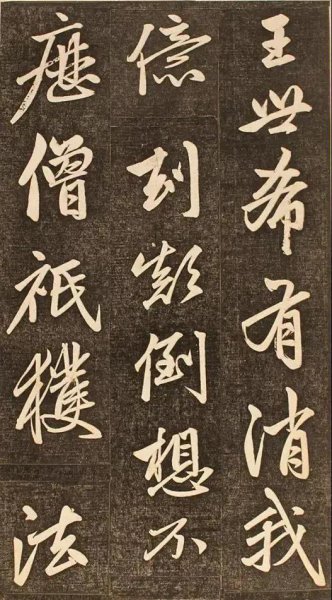 王世希有消我
億刧顛倒想不
歷僧祇獲法